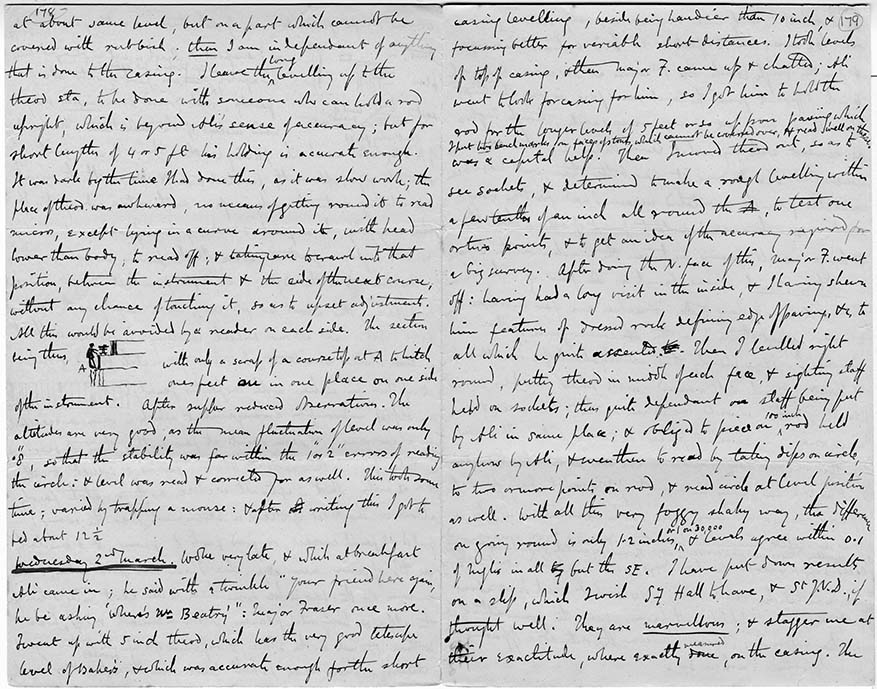 178
at about same level, but on a part which cannot be
covered with rubbish. then I am independent of anything
that is done to the casing. I leave the long levelling up to the
theod sta, to be done with someone who can hold a rod
upright, which is beyond Ali's sense of accuracy; but for
short lengths of 4 or 5 ft his holding is accurate enough.
It was dark by the time I had done this, as it was slow work, the
place of theod. was awkward, no means of getting round it to read
micros, except lying in a curve around it, with head
lower than body, to read off; & taking care to crawl into that
position, between the instrument & the side of the next course,
without any chance of touching it, so as to upset adjustment.
All this would be avoided by a reader on each side. The section
being thus, with only a scrap of a course top at A to hitch
A
ones feet in in one place on one side
of the instrument. After supper reduced observations. The
altitudes are very good, as the mean fluctuation of level was only
".8, so that the stability was far within the 1" or 2" errors of reading
the circle: & level was read & corrected for as well. This took some
time; varied by trapping a mouse: & after writing this I got to
bed about 12½
Wednesday 2nd March. Woke very late, & which at breakfast
Ali came in; he said with a twinkle "Your friend here again,
he be asking 'Where's Mr Beatry'": Major Fraser once more.
I went up with 5 inch theod, which has the very good telescope
level of Baker's, & which was accurate enough for the short
179
casing levelling, beside being handier than 10 inch, &
focussing better for variable short distances. I took levels
of top of casing, & then Major F. came up & chatted; Ali
went to look for casing for him, so I got him to hold the
rod for the longer levels of 5 feet or so up from paving which
I put two bench marks on faces of stones which cannot be covered over, & read well on these
was a capital help. Then I moved theod out, so as to
see sockets, & determined to make a rough levelling within
a few tenths of an inch all round the, to test one
or two points, & to get an idea of the accuracy required for
a big survey. After doing the N. face of this, Major F. went
off: having had a long visit in the inside, & I having shewn
him features of dressed rock defining edge of paving, &c, to
all which he quite assented. Then I levelled right
round, putting theod in middle of each face, & sighting staff
held on sockets; thus quite dependant on staff being put
by Ali in same place; & obliged to piece on 100 inch rod held
anyhow by Ali, & even then to read by taking dips on circle,
to two or more points on rod, & read circle at level position
as well. With all this very foggy shaky way, the difference
on going round is only 1.2 inches, or 1 on 30,000 & levels agree within 0.1
of highs in all but the SE. I have put down results
on a slip, which I wish Sy Hall to have, & St J.V.D., if
thought well. They are marvellous; & stagger me at
their exactitude, where exactly measured, on the casing. The